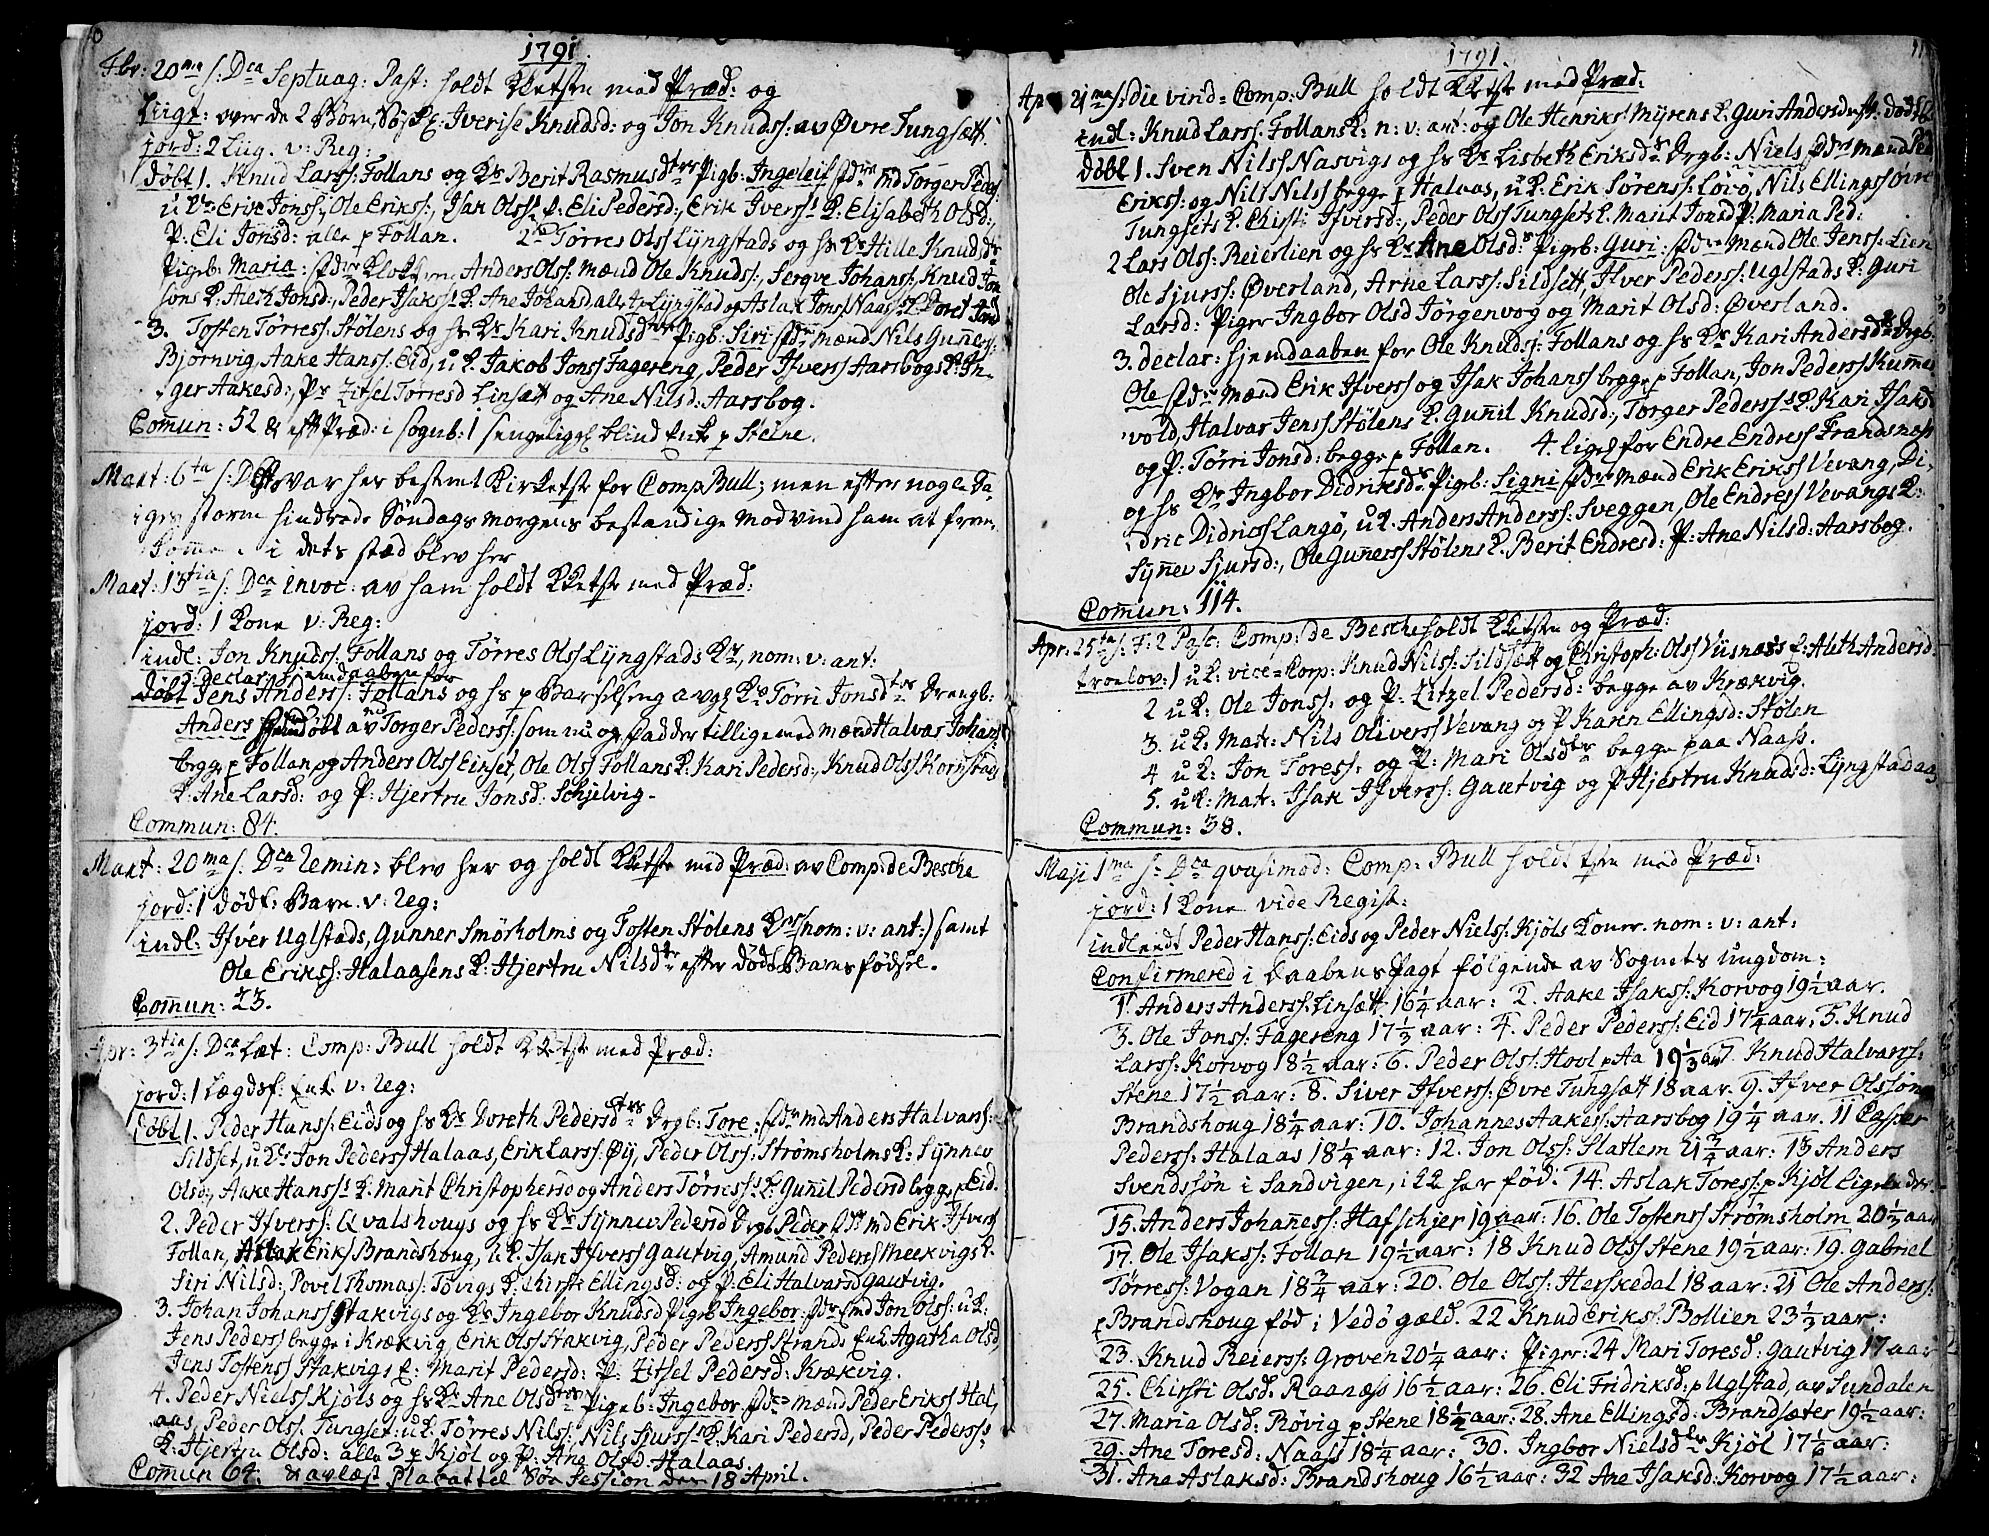 1791
Fbr: 20ma s: Dca Septuag: Past: holdt KKetste med Præd: og
Liigt: over de 2 Børn, Søsk: Iverise Knudsd: og Jon Knuds: av Øvre Tungsætt.
jord: 2 Lug. v: Reg:
døbt 1. Knud Larss: Follans og Ks Berit Rasmusdtrs Pigb: Ingeleif fdre md Torger Peders:
u Ks Erik Jonss:, Ole Erikss:, Isak Olss: P. Eli Pedersd:, Erik Iverss K: Elisabeth Olsd:,
P: Eli Jonsd: alle p Follan. 2 Tørres Olss Lyngstads og hs Ks Hille Knudsdtrs
Pigeb: Maria: fdre Klokkeren Anders Olss: Mænd Ole Knudss:, Serqve Johanss:, Knud Jon
sons K: Aleth Jonsd:, Peder Isakss K: Ane Johansd alle p Lyngstad og Aslak Jonss Naass K: Doret Jonsd
3. Tosten Tørress: Stølens og hs Ks Kari Knudsdtrs Pigb: Siri fdre mænd Nils Guñers:
Bjørnvig, Aake Hanss: Eid, u K. Jakob Jonss Fagereng, Peder Ifverss Aarsbogs K: In-
ger Aakesd:, Ps Zitsel Tørresd Linsætt og Ane Nilsd: Aarsbog.
Com̄un: 52 & eft Præd: i sognb: 1 sengeligg blind Enke p Steine.
Mart: 6ta s: D var her bestemt Kirketste for Comp Bull; men efter nogle Da
iges storm hindrede Søndags morgens bestandige modvind ham at frem-
kom̄e. i dets stæd blev her
Mart: 13tia s: Dca invoc: av ham holdt KKetste med Præd:
jord: 1 Kone v: Reg:
indl: Jon Knudss: Follans og Tørres Olss Lyngstads Kr, nom: v: ant:
Declar: hiemdaaben for
døbt Jens Anderss: Follans og hs p Barselseng avg Ks Tørri Jonsdtrs Drengb:
Anders hiemdøbt av Torger Pederss: som nu og fadder tillige med mænd Halvar Johans
begge p Follan og Anders Olss Einset, Ole Olss Follans K: Kari Pedersd:, Knud Olss Kornstad
K: Ane Larsd: og P: Hjertru Jonsd: Schjelvig.
Commun: 84.
Mart: 20ma s: Dca Remin: blev her og holdt KKetste med Præd: av Comp: de Besche
jord: 1 dødf: Barn v: Reg:
indl: Ifver Uglstads, Gunner Smørholms og Tosten Stølens Kr (nom: v: ant:) samt
Ole Erikss: Halaasens K: Hjertru Nilsdtr efter dødf: Barnsfødsel.
Com̄un: 23.
Apr: 3tia s: Dca Læt: Comp: Bull holdt KKetste med Præd:
jord: 1 Lægdsf: Enk. v: Reg:
døbt 1. Peder Hanss: Eids og hs Ks Doreth Pedersdtrs Drgb: Tore: fdre md Anders Halvarss:
Sildset, u Ks Jon Pederss Halaas, Erik Larss: Øÿ, Peder Olss: Strømsholms K: Synnev
Olsd:, Aake Hanss K: Marit Christophersd og Anders Tørress K: Guñil Pedersd begge p Eid.
2. Peder Ifverss: Qvalshougs og hs Ks Synnev Pedersd Drgb Peder fdre md Erik Ifverss
Follan, Aslak Eriks Brandshoug, u K. Isak Ifverss Gautvig, Amund Pederss Meekvigs K.
Siri Nilsd:, Povel Thomass: Tøvigs K: Chirsti Ellingsd: og P: Eli Halvarsd Gautvig.
3. Johan Johanss Stakvigs og Ks Ingebor Knudsd Pigeb Ingebor: fdre md Jon Olss: u K:
Jens Pederss begge i Krækvig, Erik Olss Stakvig, Peder Pederss Strands Enk Agatha Olsd,
Jens Tostenss Stakvigs K: Marit Pedersd: P: Zitsel Pedersd: Krækvig.
4. Peder Nielss Kjøls og hs Ks Ane Olsdtrs Pigeb: Ingebor fdre mænd Peder Erikss Hal,
aas, Peder Olss: Tungset: u K. Tørres Nilss:, Nils Sjurss K: Kari Pedersd, Peder Pederss
K: Hjertru Olsd: alle 3 p Kjøl og P: Ane Olsd Halaas.
Com̄un 64. & avlæst Placat til Søe Session den 18 April.
1791.
11
Apr 21ma s: die virid= Comp: Bull holdt KKetste med Præd:
indl: Knud Larss: Follans K: n: v: ant: og Ole Henrikss Myrens K. Guri Andersd eft. dødf b
døbt 1. Sven Nilss Nasvigs og hs Ks Lisbeth Eriksds Drgb: Niels fdre mænd Ped
Erikss: og Nils Nilss begge p Halvas, u K: Erik Sørenss: Løvø, Nils Ellingss Øvre
Tungsets K. Chisti Ifversd:, Peder Olss Tungsets K. Marit Jonsd P: Maria Ped:
2 Lars Olss: Reierlien og hs Ks Ane Olsd:s Pigeb: Guri: fdre mænd Ole Jenss: Lien
Ole Sjurss: Øverland, Arne Larss: Sildsett, Ifver Pederss: Uglstads K: Guri
Larsd: Piger Ingbor Olsd Jørgenvog og Marit Olsd: Øverland.
3. declar: hjemdaaben for Ole Knudss: Follans og hs Ks Kari Andersds Drgb:
Ole fdre mænd Erik Ifverss og Isak Johanss begge p Follan, Jon Pederss Kum̄er
vold, Halvar Jenss Stølens K. Guñil Knudsd:, Torger Pederss K: Kari Isaksd
og P: Tørri Jonsd: begge p Follan. 4. lige for Endre Endress Frandsnæss
og hs Ks Ingbor Didriksds Pigeb: Signi fdre mænd Erik Erikss Vevang, Di,
dric Didricss Langø, u K. Anders Anderss: Sveggen, Ole Endress Vevangs K:
Syñev Sjursd:, Ole Guñerss Stølens K. Berit Endresd: P: Ane Nilsd: Aarsbog.
Com̄un: 114.
Apr: 25ta s: F: 2 Pasc: Comp: de Besche holdt KKetste og Præd:
troelov: 1 u K: vice=Corp: Knud Nilss: Sildsætt og Christoph: Olss Visnæss E: Aleth Andersd:
2 u K: Ole Jonss: og P. Zitzel Pedersd: begge av Krækvig.
3. u K: Mat: Nils Oliverss Vevang og P Karen Ellingsd: Stølen
4 u K: Jon Toress: og P: Mari Olsdtr begge paa Naass.
5. u K: Mat: Isak Ifverss: Gautvig og P Hjestru Knudsd: Lyngstadaas
Commun: 38.
Maji 1ma s: Dca qvasimod: Comp: Bull holdt tste med Præd:
jord: 1 Kone vide Regist:
indledt Peder Hanss: Eids og Peder Nielss: Kjøls Koner. nom: v: ant:
Confirmered i Daabens Pagt følgende av Sognets ungdom:
1. Anders Anderss: Linsætt 16 1/4 aar: 2. Aake Isakss: Korvog 19 1/2 aar.
3. Ole Jonss: Fagereng 17 1/3 aar: 4. Peder Pederss: Eid 17 1/4 aar. 5. Knud
Larss: Korvog 18 1/2 aar: 6. Peder Olss: Hool p Aa 19 1/3 aar 7. Knud Halvarss:
Stene 17 1/2 aar: 8. Siver Ifverss: Øvre Tungsætt 18 aar. 9. Ifver Olssøn
Brandshoug 18 1/4 aar: 10. Johannes Aakess: Aarsbog 19 1/4 aar. 11 Casper
Pederss: Halaas 18 1/4 aar: 12. Jon Olss: Slatlem 21 3/4 aar: 13 Anders
Svendssøn i Sandvigen, i 22 har fød. 14. Aslak Toress: p Kjøl
15. Anders Johañess: Hafschjer 19 aar: 16. Ole Tostenss Strømsholm 20 1/3 aar
17. Ole Isakss: Follan 19 1/2 aar: 18 Knud Olss Stene 19 1/2 aar: 19. Gabriel
Tørress: Vogan 18 3/4 aar: 20. Ole Olss: Herskedal 18 aar: 21 Ole Anderss:
p Brandshoug fød i Vedø gæld. 22 Knud Erikss: Bollien 23 1/3 aar:
23. Knud Reierss: Groven 20 1/4 aar: Piger: 24 Mari Toresd: Gautvig 17 aar
25. Chirsti Olsd: Raanæss 16 1/2 aar: 26. Eli Fridriksd: p Uglstad, av Sundalen
27. Maria Olsd: Røvig p Stene 18 1/2 aar: 28. Ane Ellingsd: Brandsæter 19 1/2 aar:
29. Ane Toresd: Naass 18 1/4 aar: 30. Ingbor Nielsdtr Kjøl 17 1/6 aar:
31. Ane Aslaksd: Brandshoug 16 1/2 aar: 32 Ane Isaksd: Korvog 17 1/2 aar: